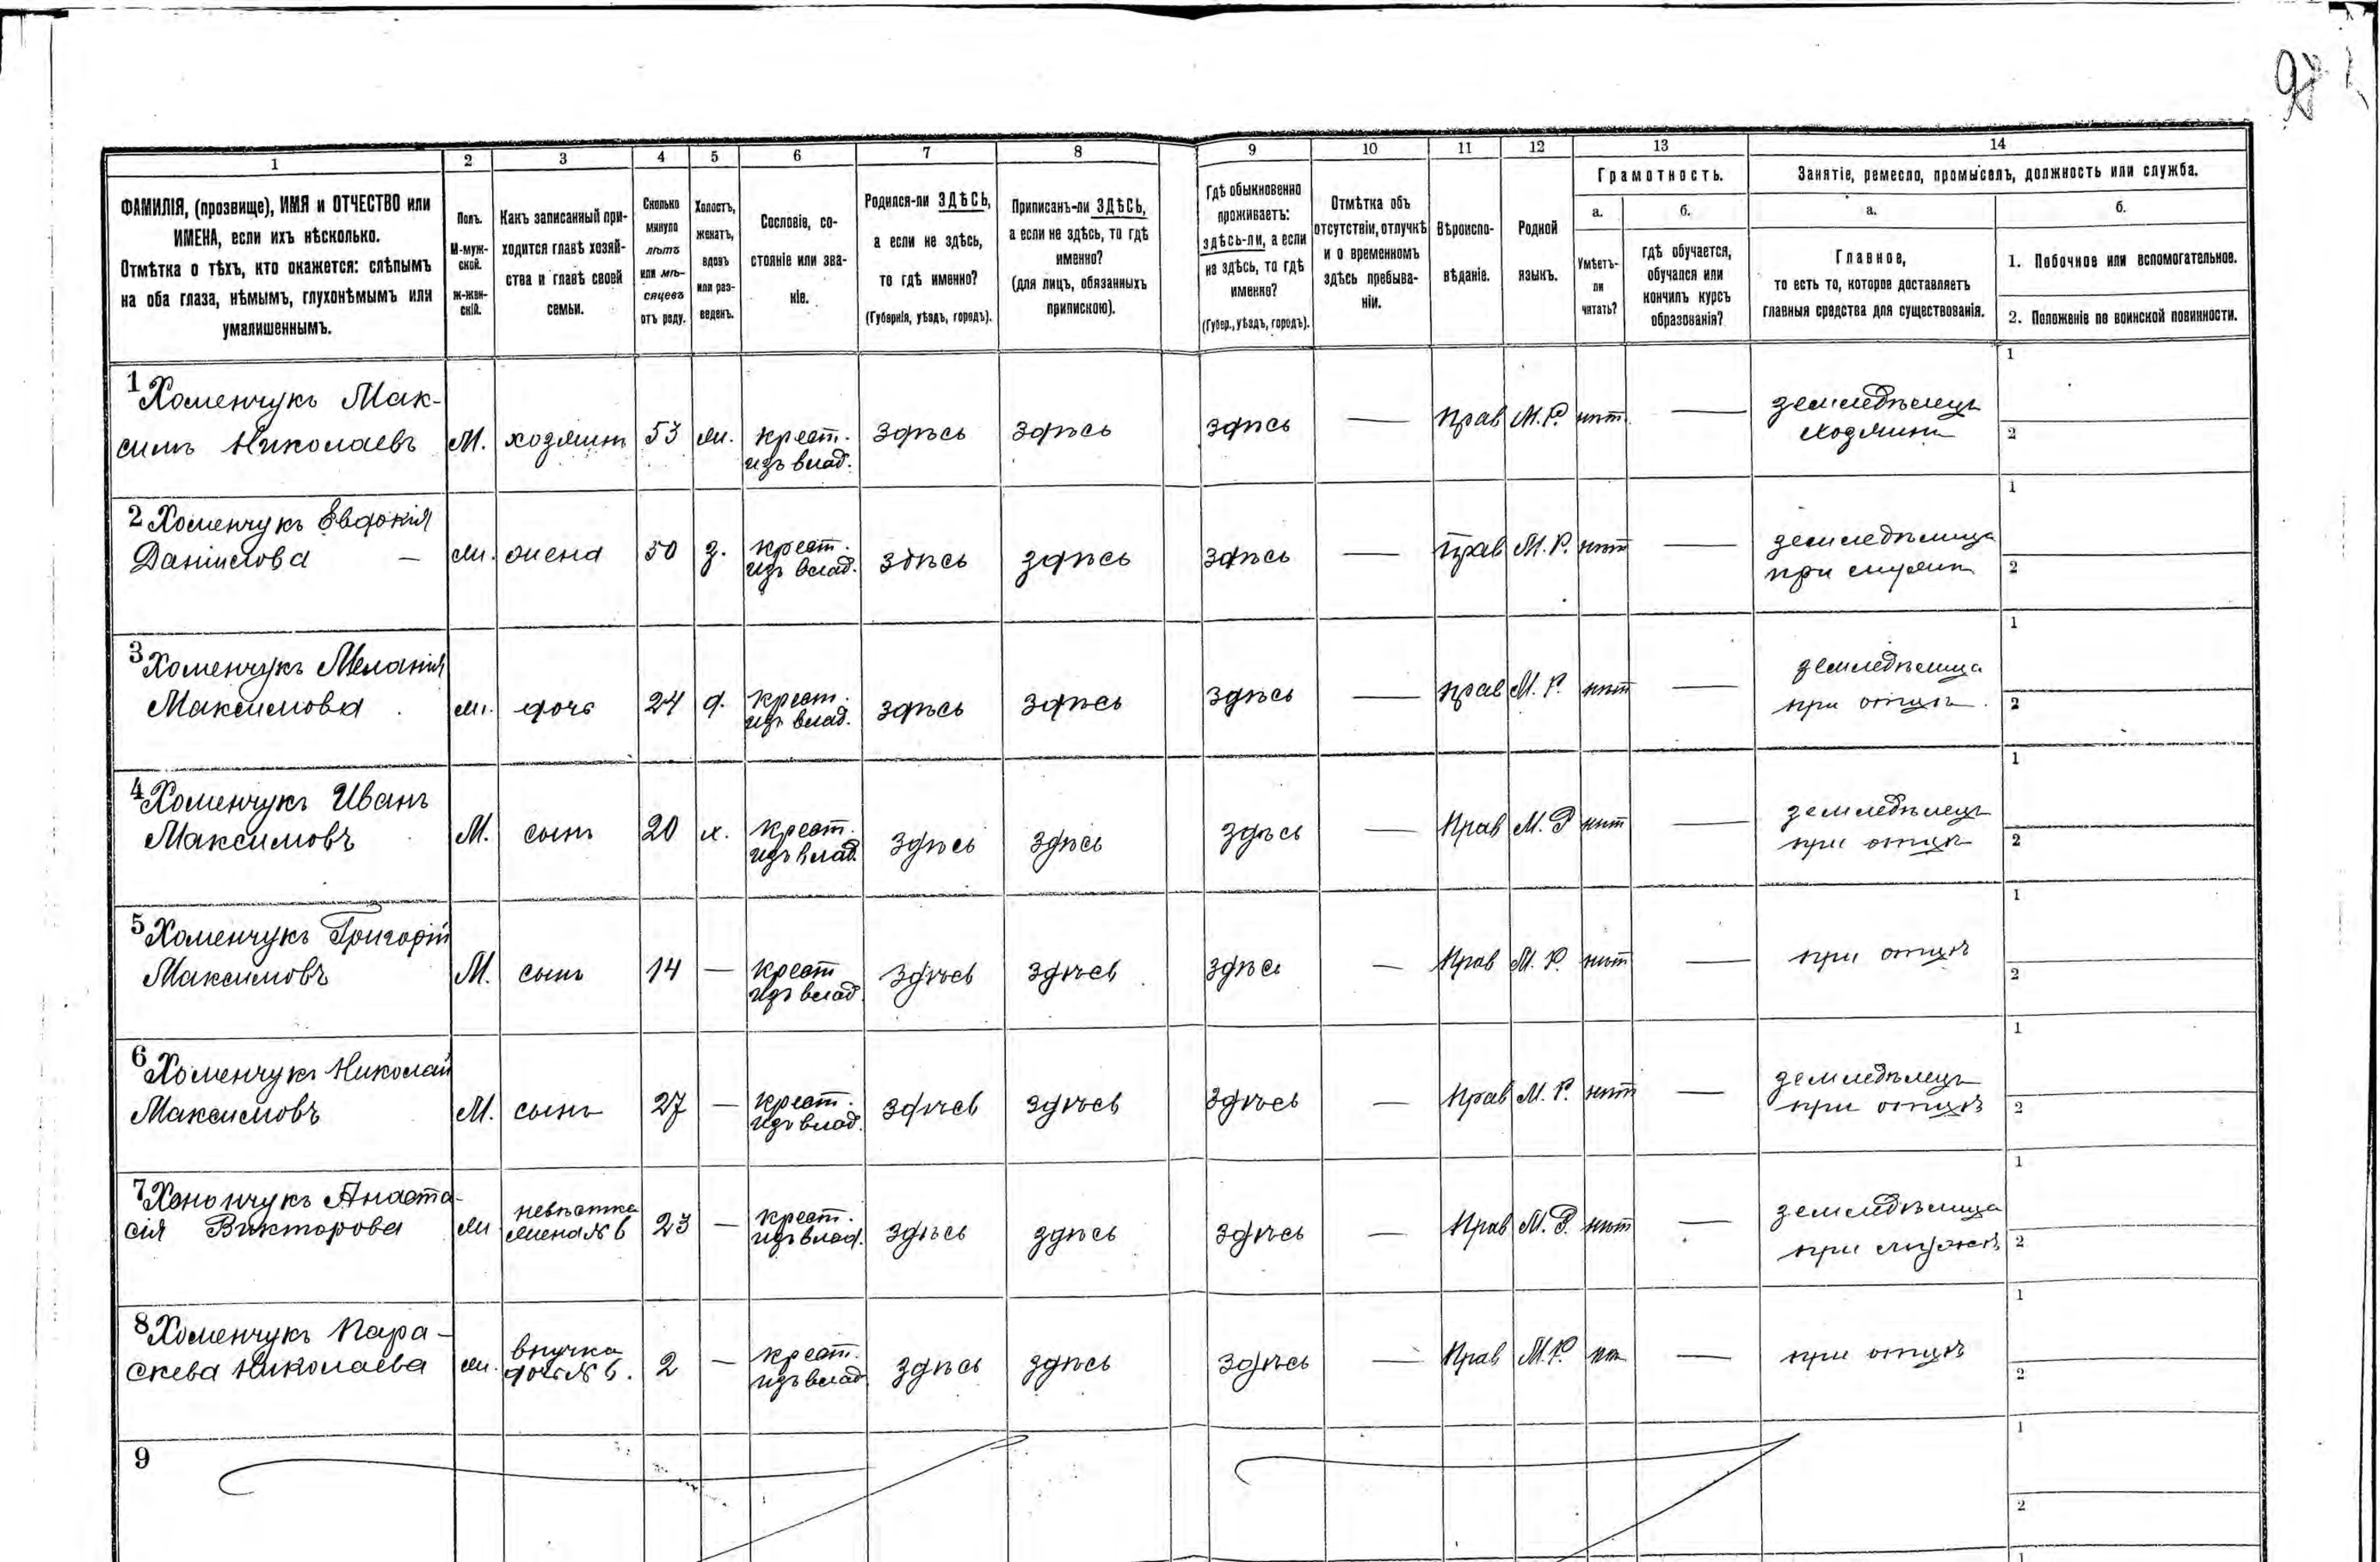 98
1 2 3 4 5 6 7 8 9 10 11 12 13 14
ФАМИЛІЯ, (прозвище), ИМЯ и ОТЧЕСТВО или
ИМЕНА, если ихъ нѣсколько.
Отмѣтка о тѣхъ, кто окажется: слѣпымъ
на оба глаза, нѣмымъ, глухонѣмымъ или
умалишеннымъ.
Полъ.
М-муж-
ской.
Ж-жен-
скій.
Какъ записанный при-
ходится главѣ хозяй-
ства и главѣ своей
семьи.
Сколько
минуло
лѣтъ
или мѣ-
сяцевъ
отъ роду.
Холостъ,
женатъ,
вдовъ
или раз-
веденъ.
Сословіе, со-
стояніе или зва-
ніе.
Родился-ли ЗДѢСЬ,
а если не здѣсь,
то гдѣ именно?
(Губернія, уѣздъ, городъ).
Приписанъ-ли ЗДѢСЬ,
а если не здѣсь, то гдѣ
именно?
(для лицъ, обязанныхъ
припискою).
Гдѣ обыкновенно
проживаетъ:
здѣсь-ли, а если
не здѣсь, то гдѣ
именно?
(Губер., уѣздъ, городъ).
Отмѣтка объ
отсутствіи, отлучкѣ
и о временномъ
здѣсь пребыва-
ніи.
Вѣроиспо-
вѣданіе.
Родной
языкъ.
Грамотность.
а.
Умѣетъ-
ли
читать?
б.
гдѣ обучается,
обучался или
кончилъ курсъ
образованія?
Занятіе, ремесло, промыселъ, должность или служба.
а.
Главное,
то есть то, которое доставляетъ
главныя средства для существованія.
б.
1. Побочное или вспомогательное.
2. Положеніе по воинской повинности.
1 Хоменчукъ Мак-
симъ Николаевъ М. хозяинъ 53 ж. крест.
изъ влад. здѣсь здѣсь здѣсь — Прав М. Р. нѣт — земледѣлецъ
хозяинъ
1
2
2 Хоменчукъ Евдокія
Данилова — ж. жена 50 з. крест.
изъ влад. здѣсь здѣсь здѣсь — Прав М. Р. нѣт — земледѣлица
при мужѣ
1
2
3 Хоменчукъ Меланія
Максимова ж. дочь 24 д. крест.
изъ влад. здѣсь здѣсь здѣсь — прав М. Р. нѣт — земледѣлица
при отцѣ
1
2
4 Хоменчукъ Иванъ
Максимовъ М. сынъ 20 х. крест.
изъ влад. здѣсь здѣсь здѣсь — Прав М. Р нѣт — земледѣлецъ
при отцѣ
1
2
5 Хоменчукъ Григорій
Максимовъ М. сынъ 14 — крест
изъ влад здѣсь здѣсь здѣсь — Прав М. Р. нѣт — при отцѣ
1
2
6 Хоменчукъ Николай
Максимовъ М. сынъ 27 — крест.
изъ влад. здѣсь здѣсь здѣсь — Прав М. Р. нѣт — земледѣлецъ
при отцѣ
1
2
7 Хоменчукъ Анаста-
сія Викторова ж невѣстка
жена № 6 23 — крест.
изъ влад. здѣсь здѣсь здѣсь — Прав М. Р. нѣт — земледѣлица
при мужѣ
1
2
8 Хоменчукъ Пара-
скева Николаева ж. внучка
дочь № 6. 2 — крест.
изъ влад здѣсь здѣсь здѣсь — Прав М. Р. — при отцѣ
1
2
9
1
2
1